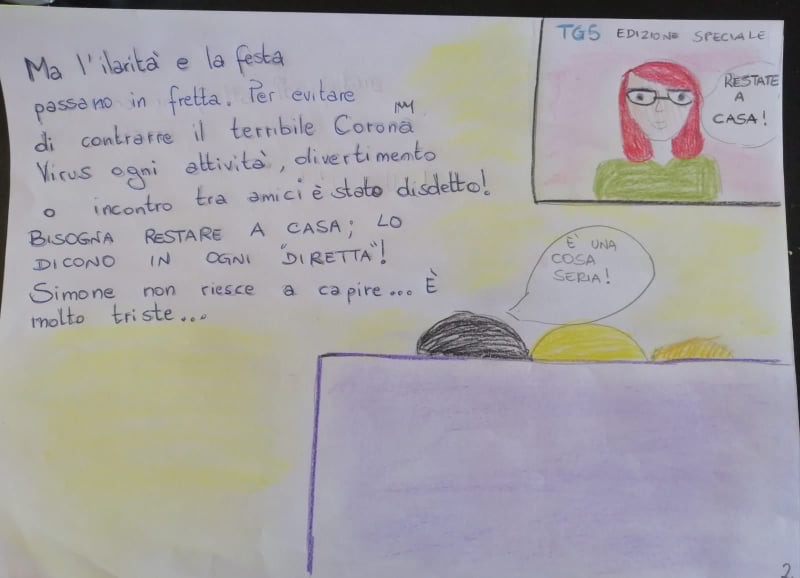 Ma l'ilarità e la festa
passano in fretta. Per evitare
di contrarre il terribile Corona
Virus ogni attività, divertimento
o incontro tra amici è stato disdetto!
BISOGNA RESTARE A CASA; LO
DICONO IN OGNI "DIRETTA"!
Simone non riesce a capire... È
molto triste...
TG5 EDIZIONE SPECIALE
RESTATE
A
CASA!
È UNA
COSA
SERIA!
2